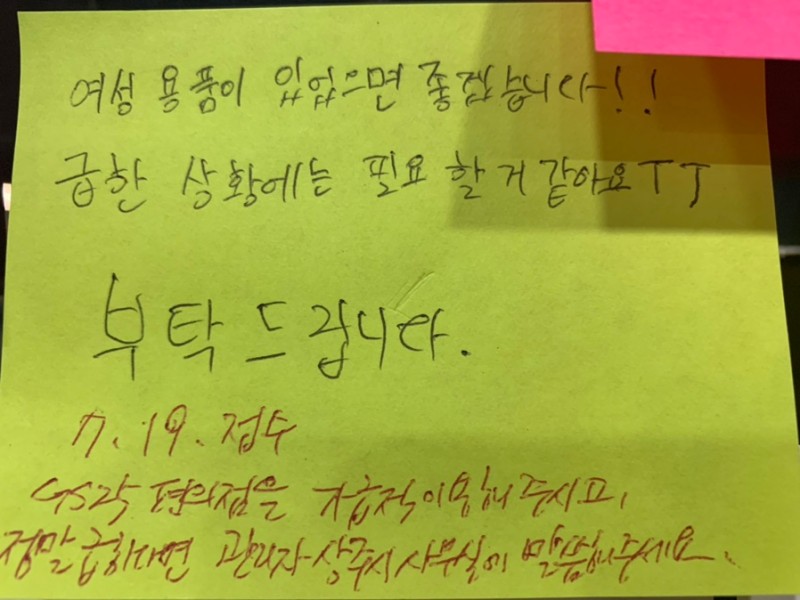 여성 용품이 있었으면 좋겠습니다!!
급한 상황에는 필요 할 거 같아요 ㅜㅜ
부탁드립니다.
7.19. 접수
GS25 편의점을 가급적 이용해 주시고,
정말 급하다면 관리자 상주시 사무실에 말씀해주세요.